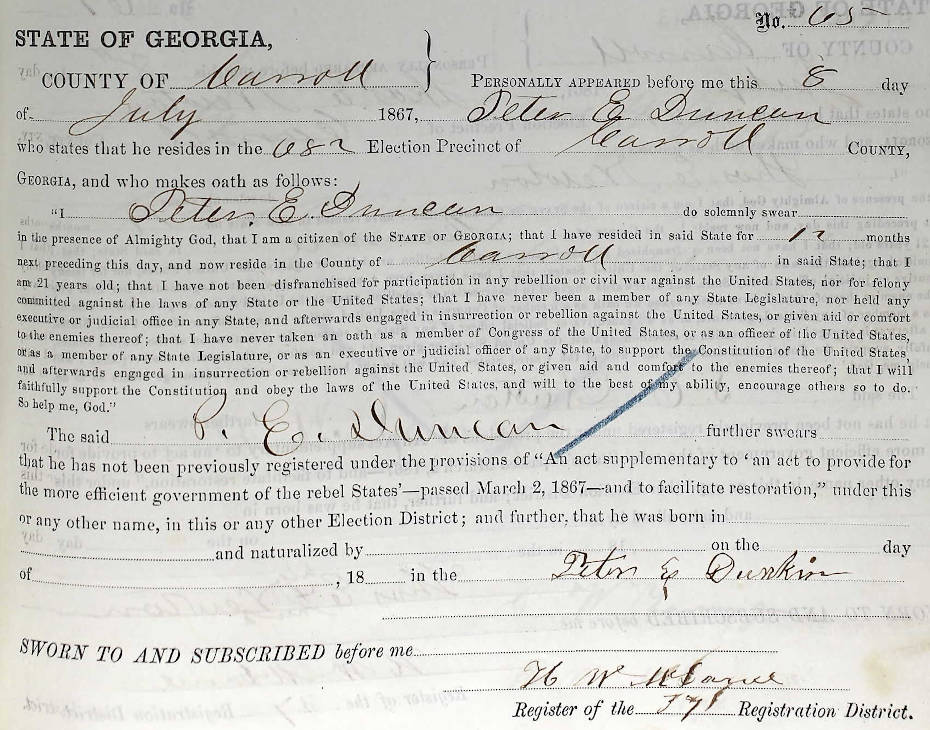 No. 65
STATE OF GEORGIA,
COUNTY OF Carroll } PERSONALLY APPEARED before me this 8 day
of July 1867, Peter E Duncan
who states that he resides in the 682 Election Precinct of Carroll COUNTY,
GEORGIA, and who makes oath as follows:
"I Peter, E. Duncan do solemnly swear
in the presence of Almighty God, that I am a citizen of the STATE OF GEORGIA; that I have resided in said State for 12 months
next preceding this day, and now reside in the County of Carroll in said State; that I
am 21 years old; that I have not been disfranchised for participation in any rebellion or civil war against the United States, nor for felony
committed against the laws of any State or the United States; that I have never been a member of any State Legislature, nor held any
executive or judicial office in any State, and afterwards engaged in insurrection or rebellion against the United States, or given aid or comfort
to the enemies thereof; that I have never taken an oath as a member of Congress of the United States, or as an officer of the United States,
or as a member of any State Legislature, or as an executive or judicial officer of any State, to support the Constitution of the United States,
and afterwards engaged in insurrection or rebellion against the United States, or given aid and comfort to the enemies thereof; that I will
faithfully support the Constitution and obey the laws of the United States, and will to the best of my ability, encourage others so to do.
So help me, God."
The said P. E. Duncan further swears
that he has not been previously registered under the provisions of "An act supplementary to 'an act to provide for
the more efficient government of the rebel States'—passed March 2, 1867—and to facilitate restoration," under this
or any other name, in this or any other Election District; and further, that he was born in
and naturalized by on the day
of , 18 in the Peter E Dunkin
SWORN TO AND SUBSCRIBED before me
H W
Register of the 37 Registration District.